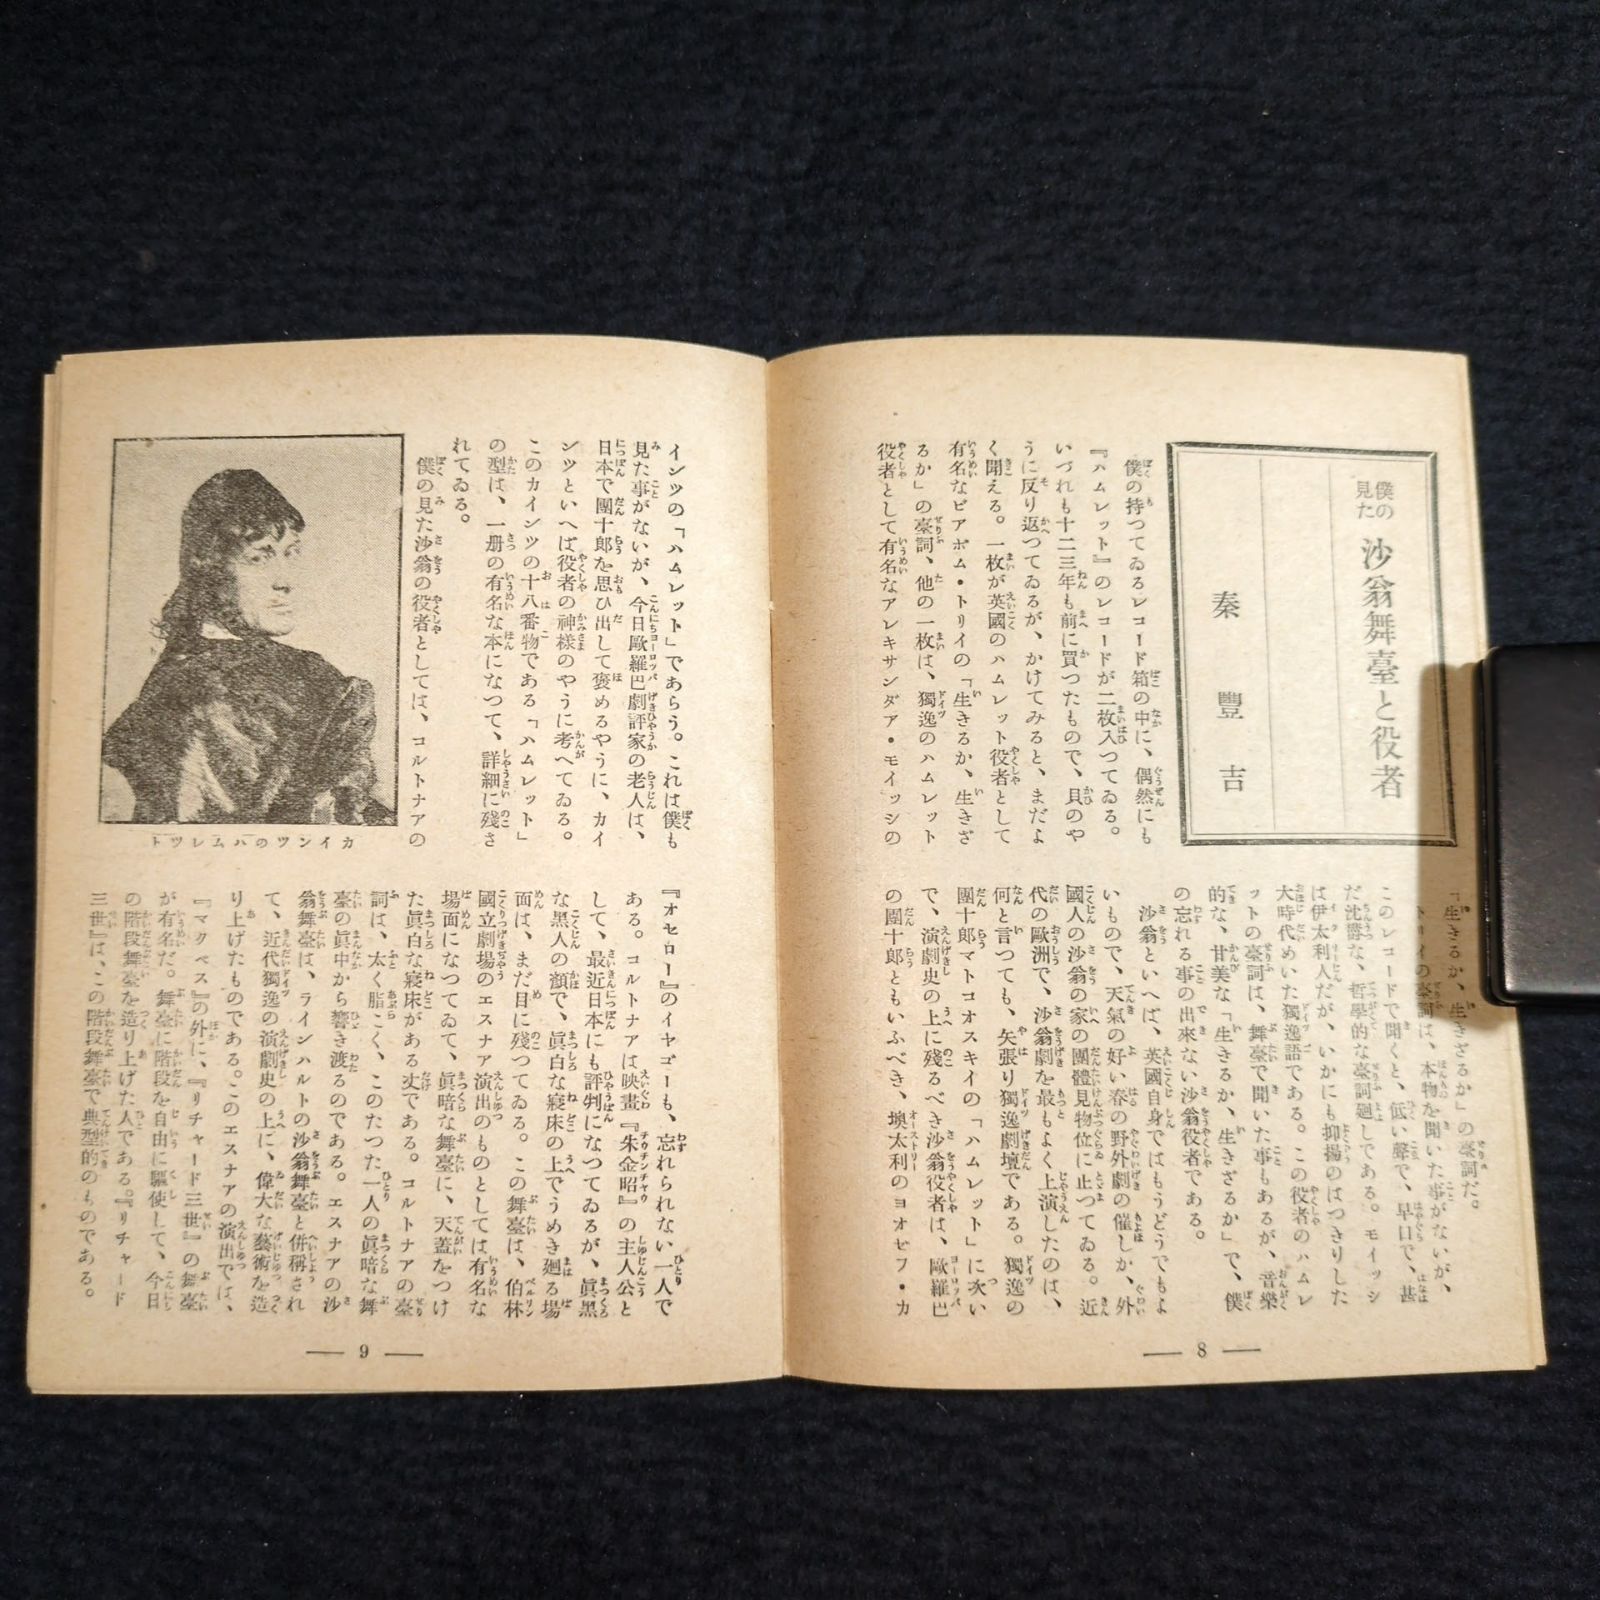 僕の見た 沙翁舞臺と役者
秦豐吉
僕の持つてゐるレコード箱の中に、偶然にも
『ハムレット』のレコードが二枚入つてゐる。
いづれも十二三年も前に買つたもので、貝のや
うに反り返つてゐるが、かけてみると、まだよ
く聞える。一枚が英國のハムレット役者として
有名なビアボム・トリイの「生きるか、生きざ
るか」の臺詞、他の一枚は、獨逸のハムレット
役者として有名なアレキサンダア・モイッシの
「生きるか、生きざるか」の臺詞だ。
トリイの臺詞は、本物を聞いた事がないが、
このレコードで聞くと、低い聲で、早口で、甚
だ沈欝な、哲學的な臺詞廻しである。モイッシ
は伊太利人だが、いかにも抑揚のはつきりした
大時代めいた獨逸語である。この役者のハムレ
ットの臺詞は、舞臺で聞いた事もあるが、音樂
的な、甘美な「生きるか、生きざるか」で、僕
の忘れる事の出來ない沙翁役者である。
沙翁といへば、英國自身ではもうどうでもよ
いもので、天氣の好い春の野外劇の催しか、外
國人の沙翁の家の團體見物位に止つてゐる。近
代の歐洲で、沙翁劇を最もよく上演したのは、
何と言つても、矢張り獨逸劇壇である。獨逸の
團十郎マトコオスキイの「ハムレット」に次い
で、演劇史の上に殘るべき沙翁役者は、歐羅巴
の團十郎ともいふべき、墺太利のヨオゼフ・カ
— 8 —
インツの「ハムレット」であらう。これは僕も
見た事がないが、今日歐羅巴劇評家の老人は、
日本で團十郎を思ひ出して褒めるやうに、カイ
ンツといへば役者の神樣のやうに考へてゐる。
このカインツの十八番物である「ハムレット」
の型は、一册の有名な本になつて、詳細に殘さ
れてゐる。
僕の見た沙翁の役者としては、コルトナアの
カインツのハムレツト
『オセロー』のイヤゴーも、忘れられない一人で
ある。コルトナアは映畫『朱金昭』の主人公と
して、最近日本にも評判になつてゐるが、眞黑
な黑人の顏で、眞白な寢床の上でうめき廻る場
面は、まだ目に殘つてゐる。この舞臺は、伯林
國立劇場のエスナア演出のものとしては有名な
場面になつてゐて、眞暗な舞臺に、天蓋をつけ
た眞白な寢床がある丈である。コルトナアの臺
詞は、太く脂こく、このたつた一人の眞暗な舞
臺の眞中から響き渡るのである。エスナアの沙
翁舞臺は、ラインハルトの沙翁舞臺と併稱され
て、近代獨逸の演劇史の上に、偉大な藝術を造
り上げたものである。このエスナアの演出では、
『マクベス』の外に、『リチャード三世』の舞臺
が有名だ。舞臺に階段を自由に驅使して、今日
の階段舞臺を造り上げた人である。『リチャード
三世』は、この階段舞臺で典型的のものである。
— 9 —